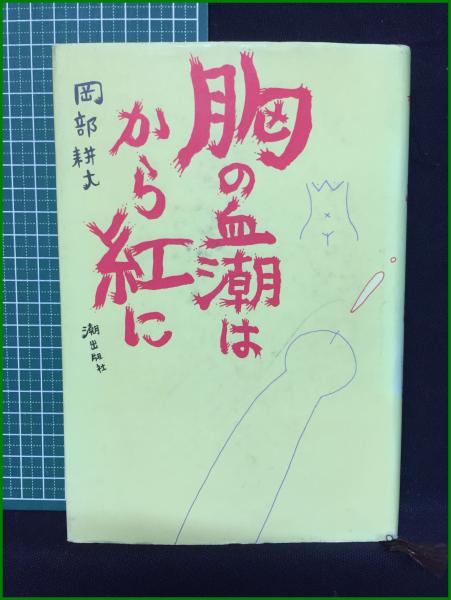 胸の血潮は
から紅に
岡部耕大
潮出版社